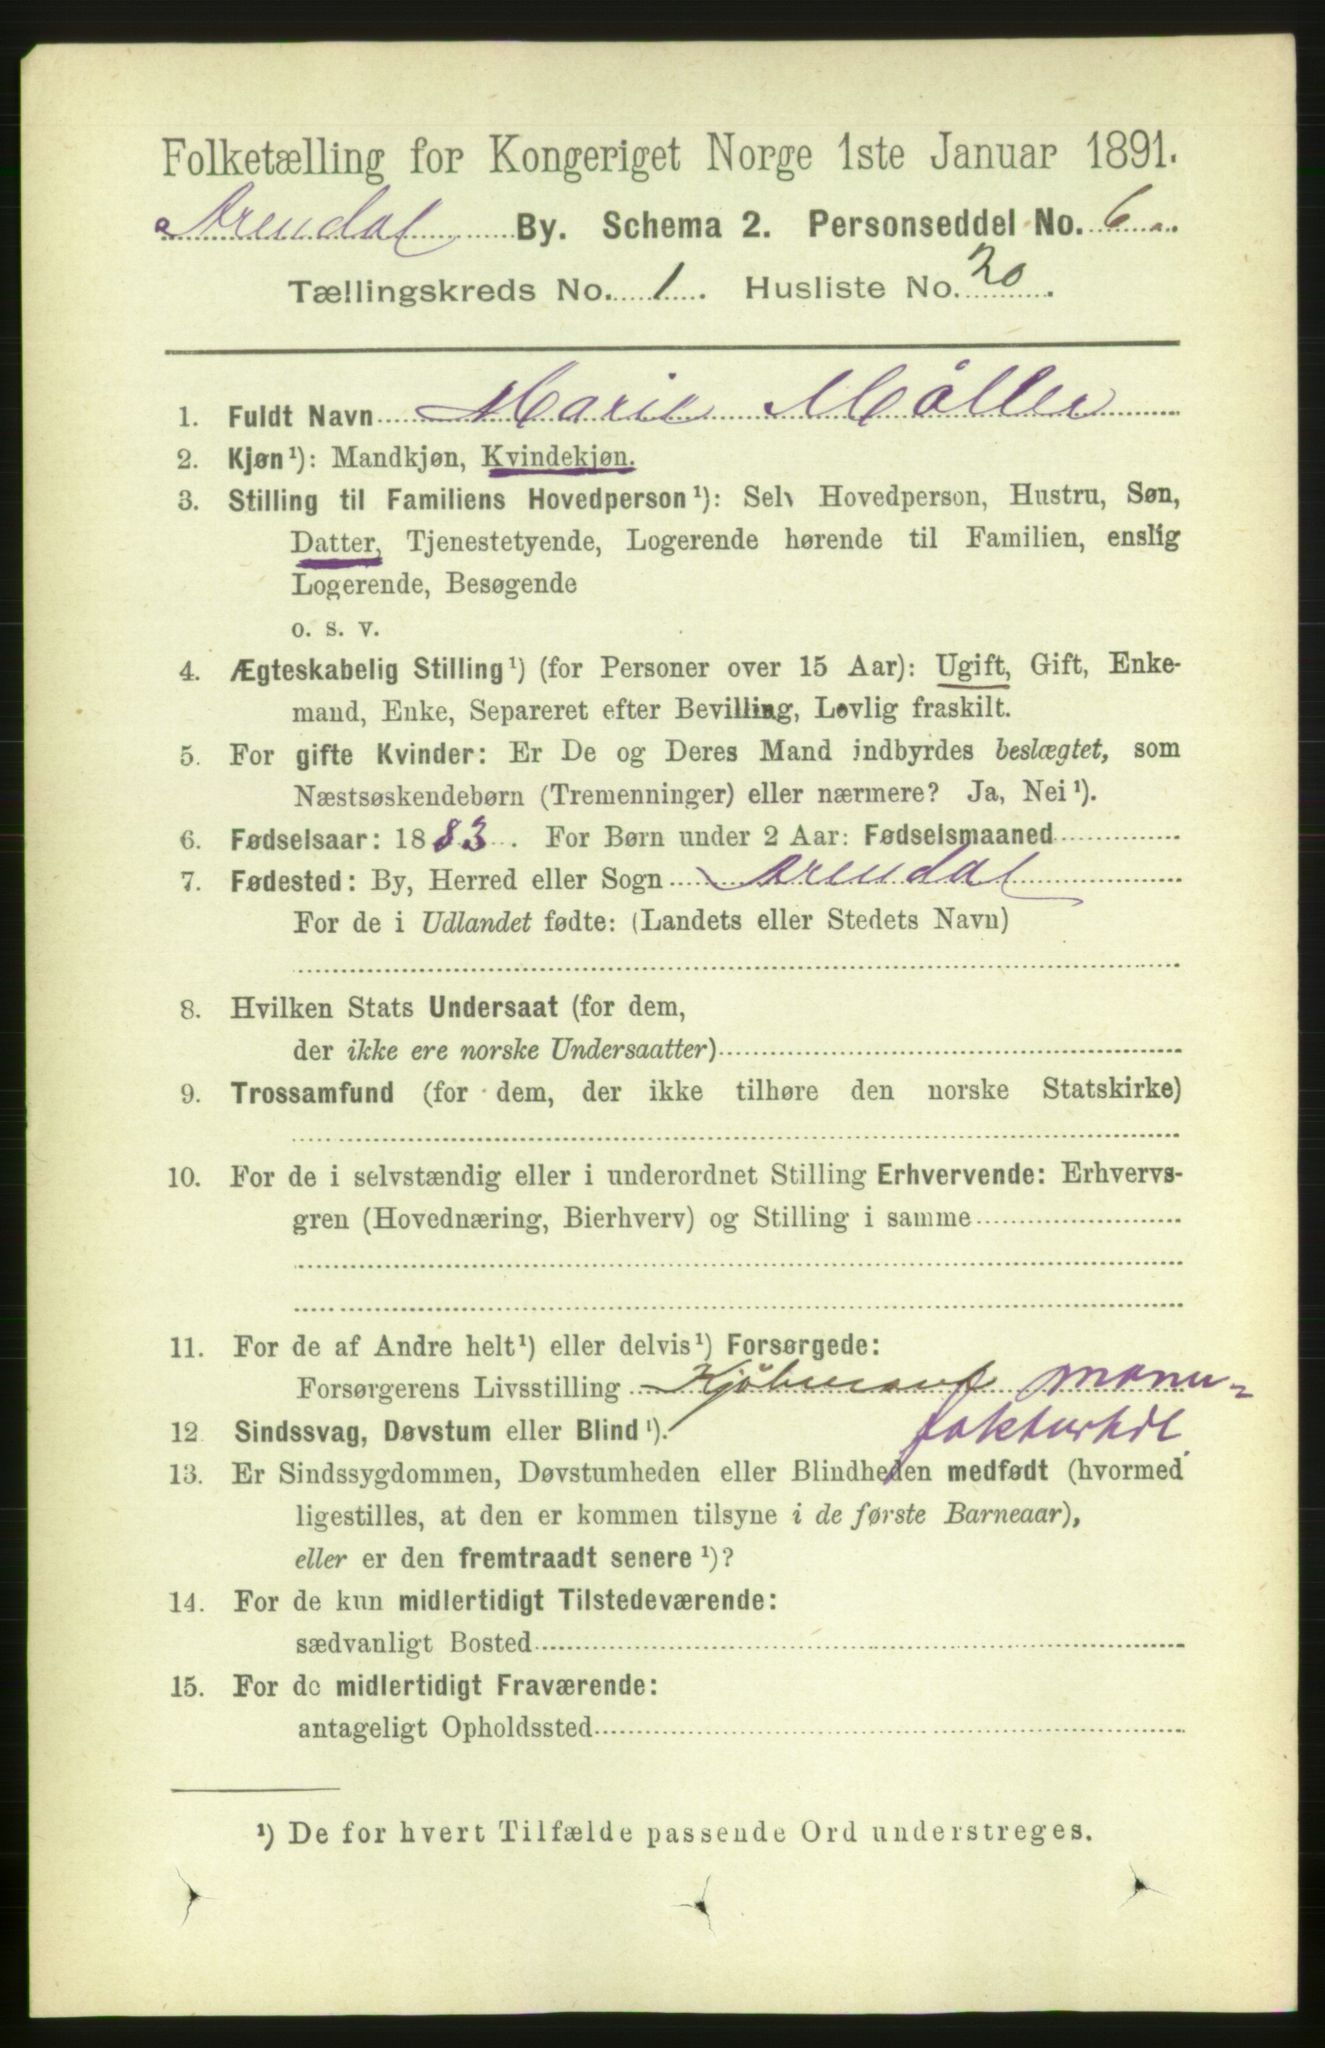 Folketælling for Kongeriget Norge 1ste Januar 1891.
Arendal By. Schema 2. Personseddel No. 6
Tællingskreds No. 1. Husliste No. 20.
1. Fuldt Navn Marie Möller
2. Kjøn¹): Mandkjøn, Kvindekjøn.
3. Stilling til Familiens Hovedperson¹): Selv Hovedperson, Hustru, Søn,
Datter, Tjenestetyende, Logerende hørende til Familien, enslig
Logerende, Besøgende
o. s. v.
4. Ægteskabelig Stilling¹) (for Personer over 15 Aar): Ugift, Gift, Enke-
mand, Enke, Separeret efter Bevilling, Lovlig fraskilt.
5. For gifte Kvinder: Er De og Deres Mand indbyrdes beslægtet, som
Næstsøskendebørn (Tremenninger) eller nærmere? Ja, Nei¹).
6. Fødselsaar: 1883. For Børn under 2 Aar: Fødselsmaaned
7. Fødested: By, Herred eller Sogn Arendal
For de i Udlandet fødte: (Landets eller Stedets Navn)
8. Hvilken Stats Undersaat (for dem,
der ikke ere norske Undersaatter)
9. Trossamfund (for dem, der ikke tilhøre den norske Statskirke)
10. For de i selvstændig eller i underordnet Stilling Erhvervende: Erhvervs-
gren (Hovednæring, Bierhverv) og Stilling i samme
11. For de af Andre helt¹) eller delvis¹) Forsørgede:
Forsørgerens Livsstilling Kjöbmand manu-
fakturhdl.
12. Sindssvag, Døvstum eller Blind¹).
13. Er Sindssygdommen, Døvstumheden eller Blindheden medfødt (hvormed
ligestilles, at den er kommen tilsyne i de første Barneaar),
eller er den fremtraadt senere¹)?
14. For de kun midlertidigt Tilstedeværende:
sædvanligt Bosted
15. For de midlertidigt Fraværende:
antageligt Opholdssted
¹) De for hvert Tilfælde passende Ord understreges.